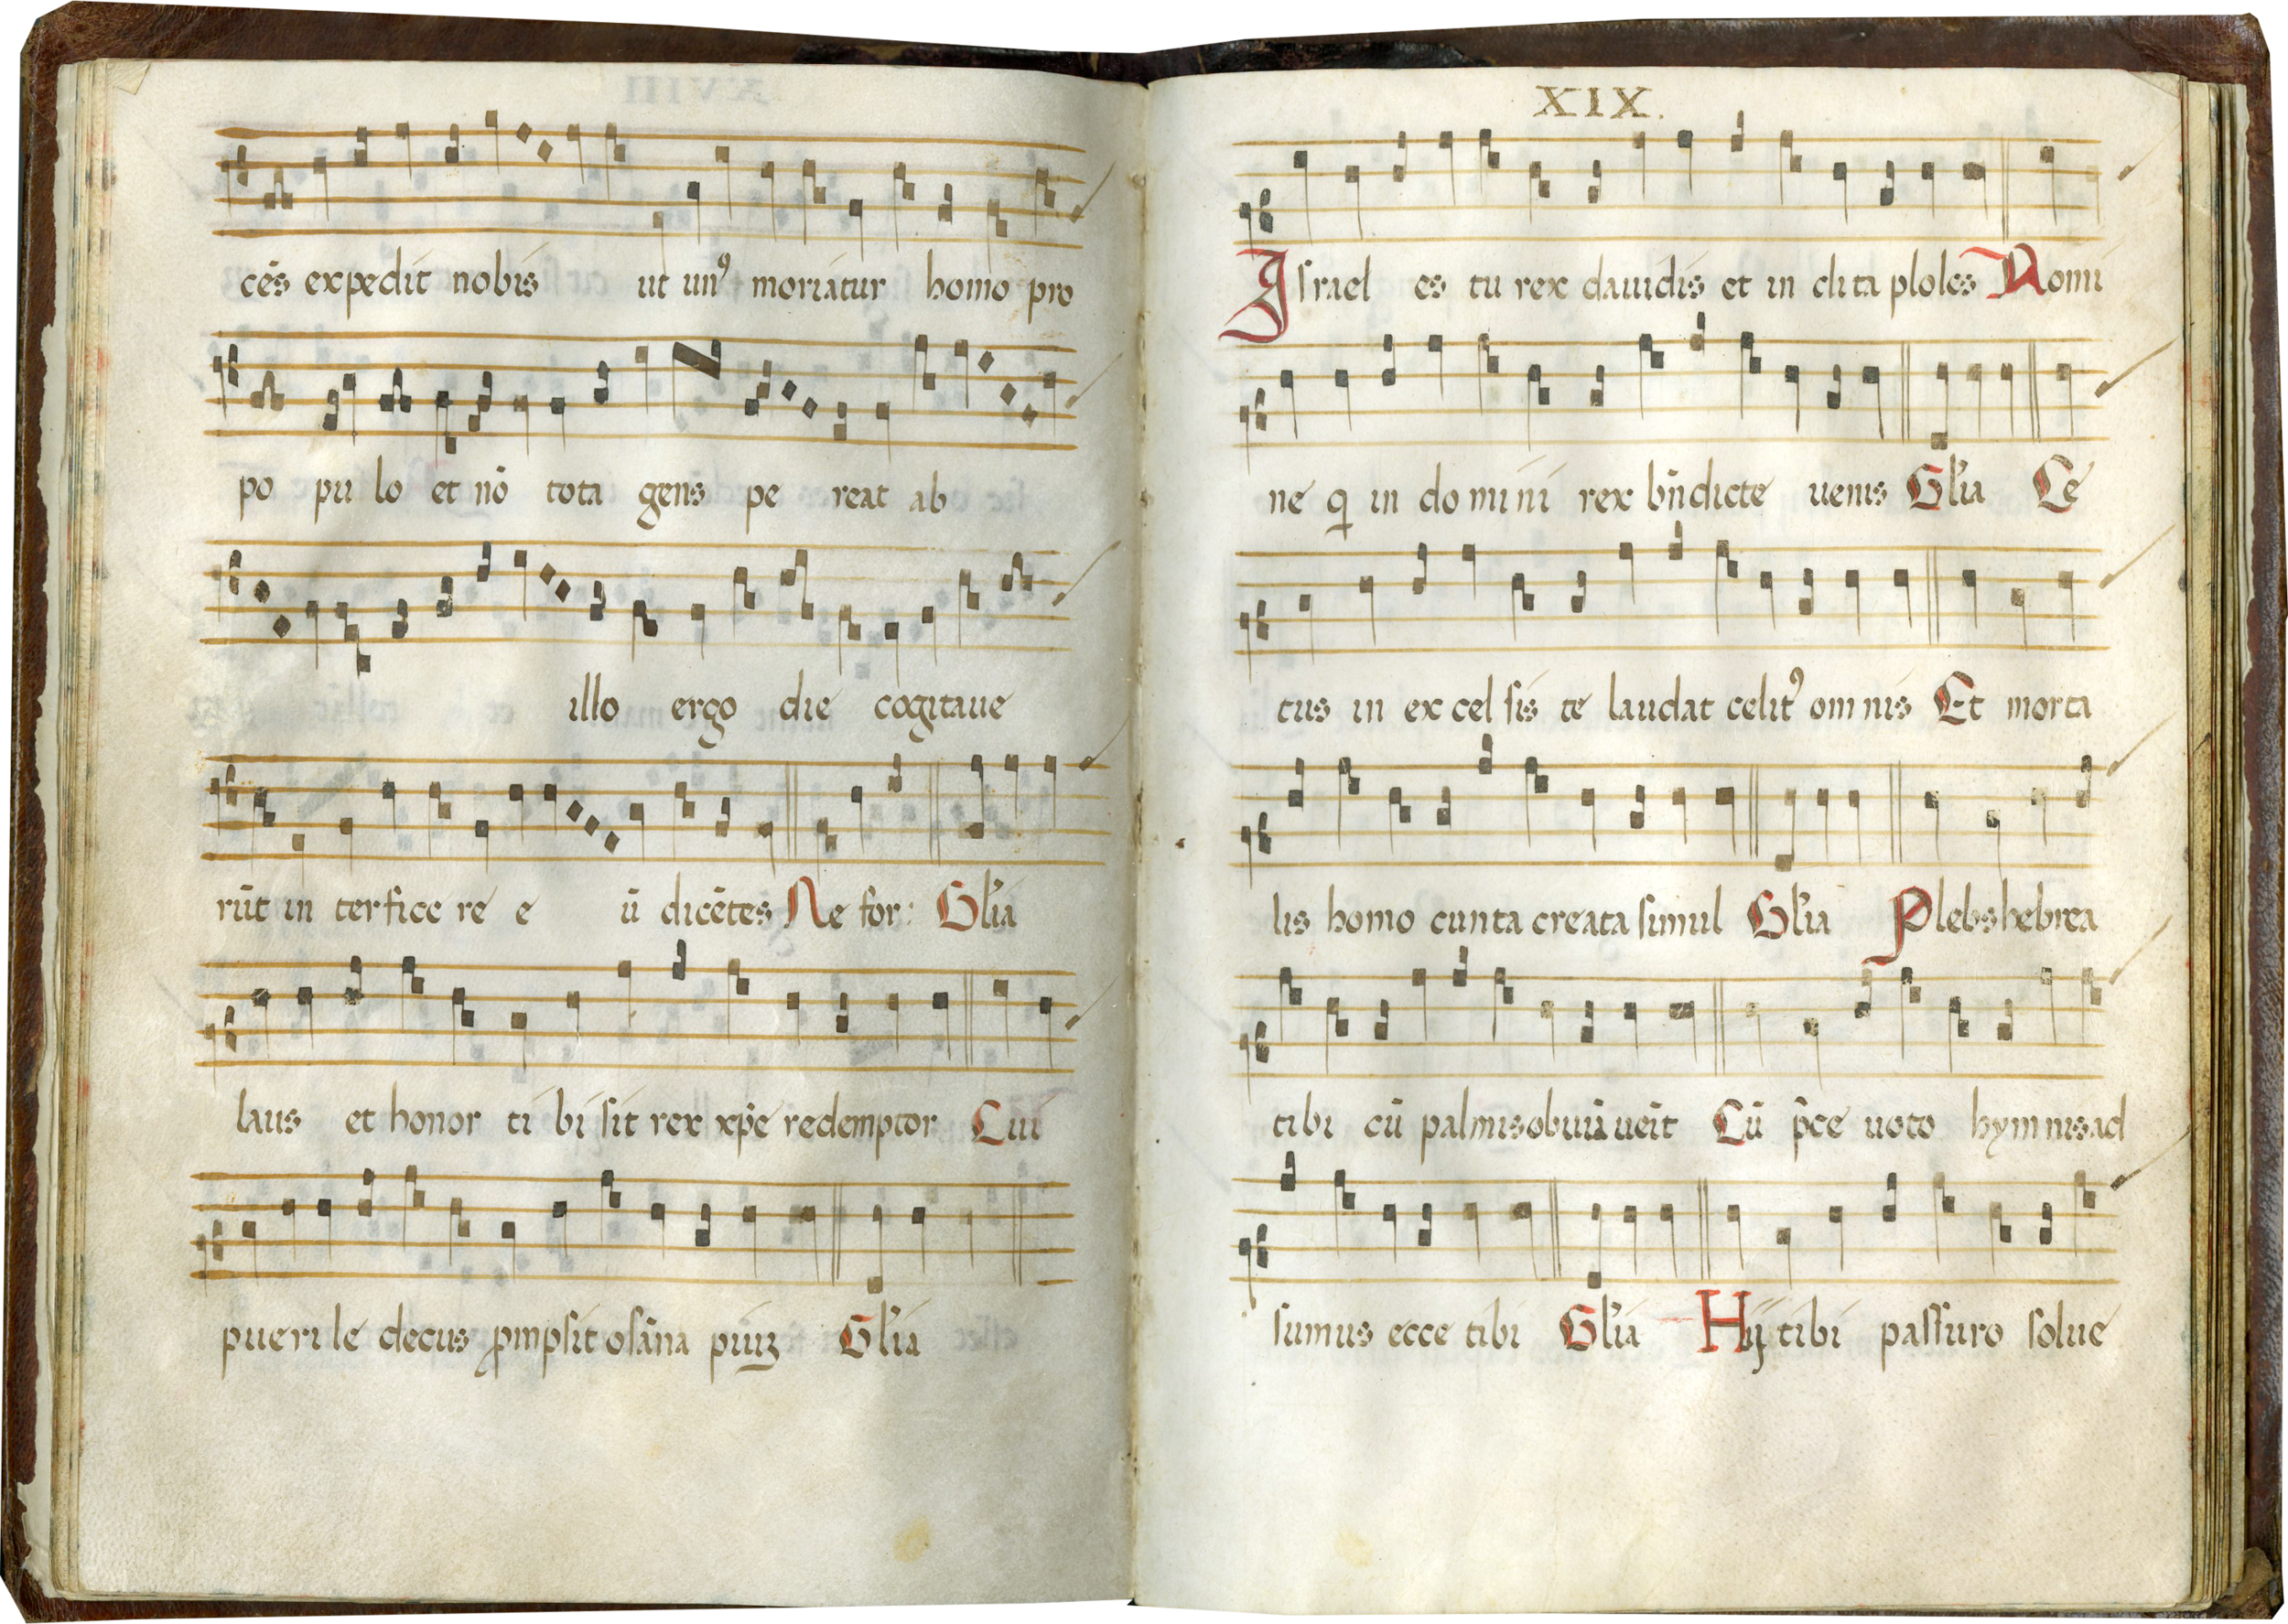 cēs expedit nobis ut unꝰ moriatur homo pro
po pu lo et nō tota gens pe reat ab
illo ergo die cogitaue
rūt in terfice re e ū dicētes Ne for: Gl'ia
laus et honor ti bi sit rex xp̄e redemptor Cui
pueri le decus ꝓmpsit osāna piuꝫ Gl'ia
XIX.
Israel es tu rex dauidis et in clita ploles Nomi
ne q in do mini rex bn̄dicte uenis Gl'ia Ce
tus in ex cel sis te laudat celitꝰ om nis Et morta
lis homo cunta creata simul Gl'ia Plebs hebrea
tibi cū palmis obuiū ueīt Cū p̄ce uoto hym nis ad
sumus ecce tibi Gl'ia Hij tibi passuro solue